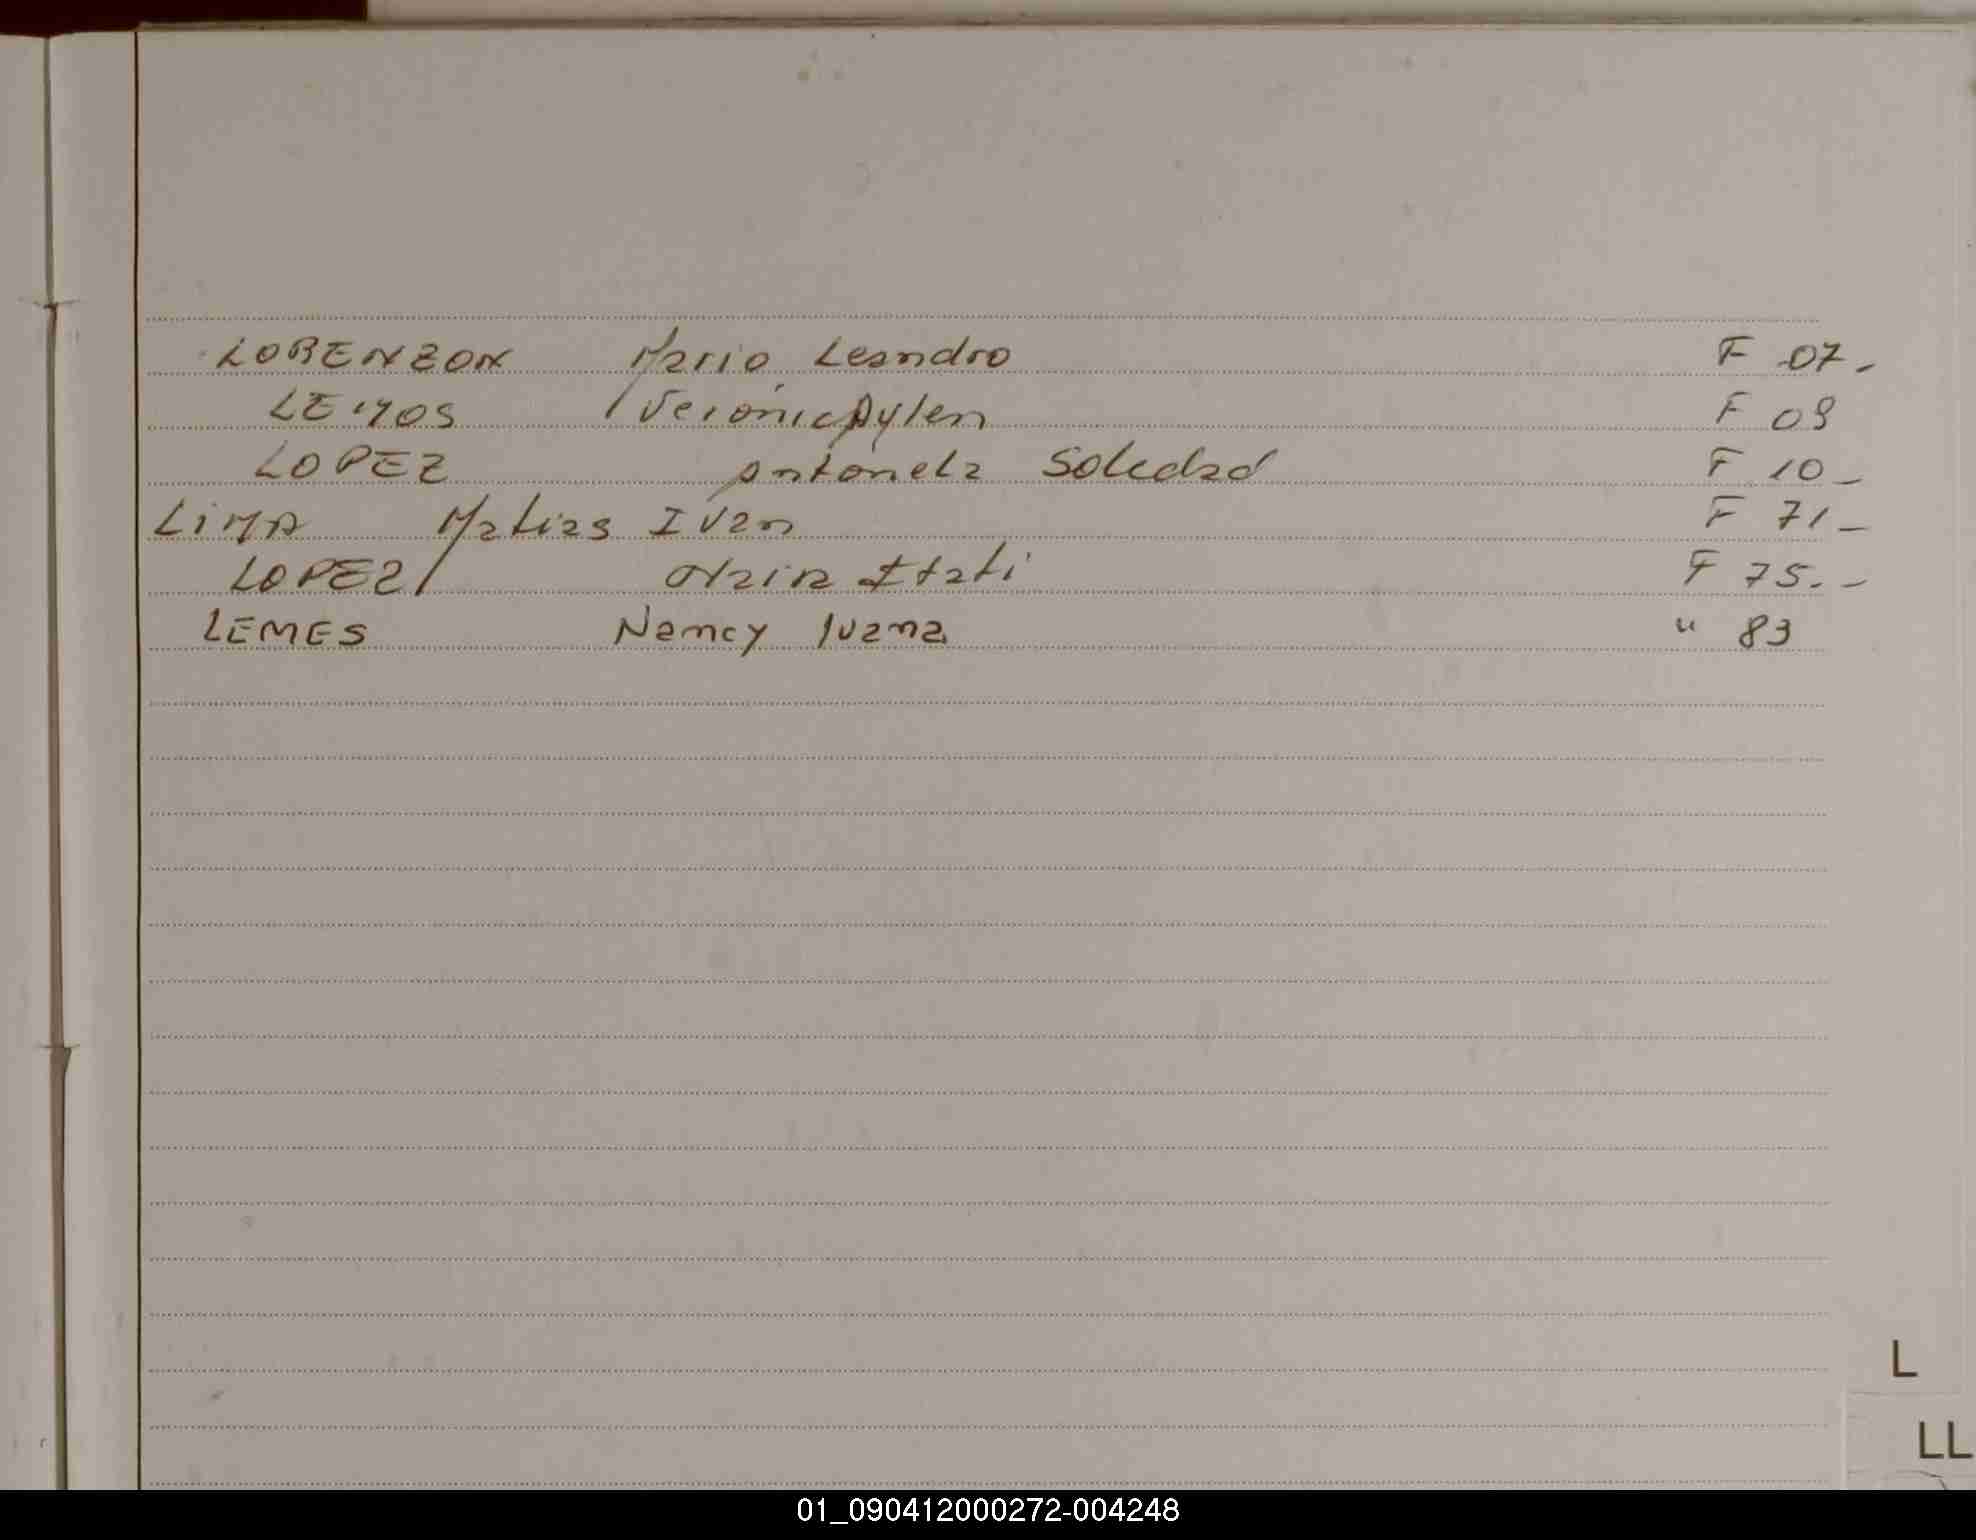 LORENZON Mario Leandro F 07-
LEMOS Veronic Aylen F 09
LOPEZ Antonela Soledad F 10-
LIMA Matias Ivan F 71-
LOPEZ Itati F 75.-
LEMES Nancy Ivana " 83
L
LL
01_090412000272-004248